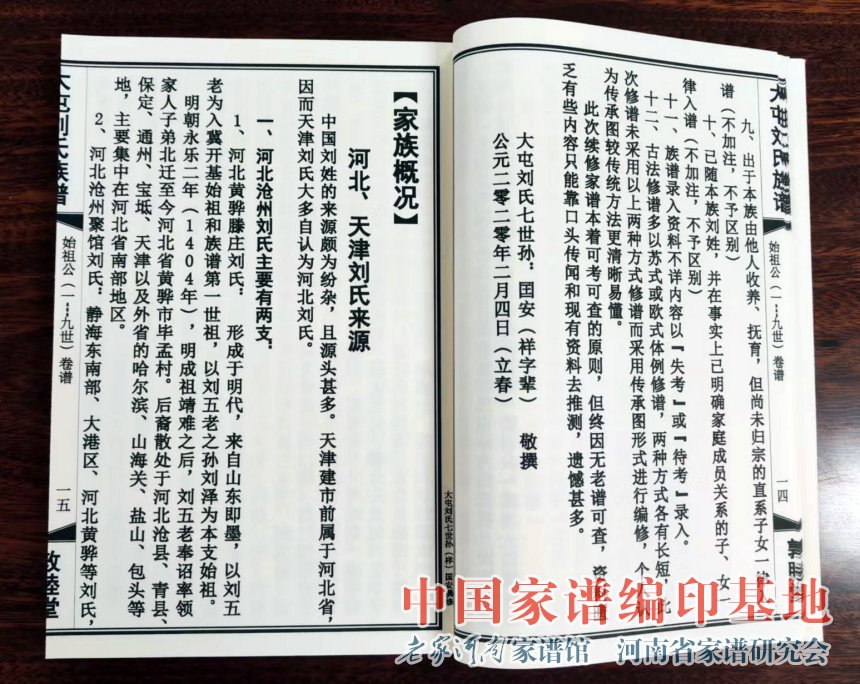 九、出于本族由他人收养、抚育，但尚未归宗的直系子女一律入
谱（不加注，不予区别）
十、已随本族刘姓，并在事实上已明确家庭成员关系的子、女一
律入谱（不加注，不予区别）
十一、族谱录入资料不详内容以『失考』或『待考』录入。
十二、古法修谱多以苏式或欧式体例修谱，两种方式各有长短，此
次修谱未采用以上两种方式修谱而采用传承图形式进行编修，个人认
为传承图较传统方法更清晰易懂。
此次续修家谱本着可考可查的原则，但终因无老谱可查，资料
乏有些内容只能靠口头传闻和现有资料去推测，遗憾甚多。
大屯刘氏七世孙：国安（祥字辈） 敬撰
公元二零二零年二月四日（立春）
始祖公（一---九世）卷谱
一四
【家族概况】
河北、天津刘氏来源
中国刘姓的来源颇为纷杂，且源头甚多。天津建市前属于河北省，
因而天津刘氏大多自认为河北刘氏。
一、河北沧州刘氏主要有两支：
1、河北黄骅滕庄刘氏： 形成于明代，来自山东即墨，以刘五
老为入冀开基始祖和族谱第一世祖，以刘五老之孙刘泽为本支始祖。
明朝永乐二年（1404年），明成祖靖难之后，刘五老奉诏率领
家人子弟北迁至今河北省黄骅市毕孟村。后裔散处于河北沧县、青县、
保定、通州、宝坻、天津以及外省的哈尔滨、山海关、盐山、包头等
地，主要集中在河北省南部地区。
2、河北沧州聚馆刘氏：静海东南部、大港区、河北黄骅等刘氏，
大屯刘氏族谱
始祖公（一---九世）卷谱
一五
敦睦堂
大屯刘氏七世孙（祥）国安典修
中国家谱编印基地
老家河南家谱馆 河南省家谱研究会